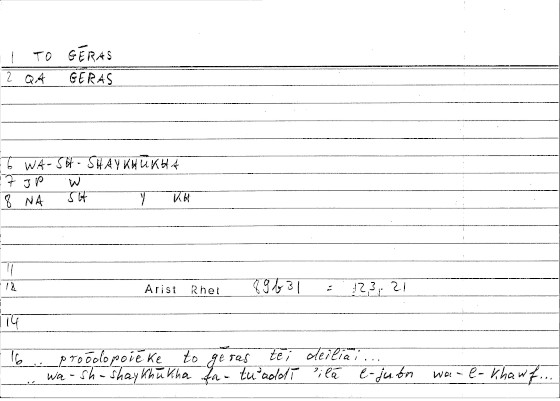 1 TO GĒRAS
2 QA GĒRAS
6 WA-SH-SHAYKHŪKHA
7 JP W
8 NA SH Y KH
11
12 Arist Rhet 89b31 = 123,21
14
16 .. proōdopoiēke to gēras tēi deiliāi...
.. wa-sh-shaykhūkha fa-tu'addī 'ilā l-jubn wa-l-khawf...